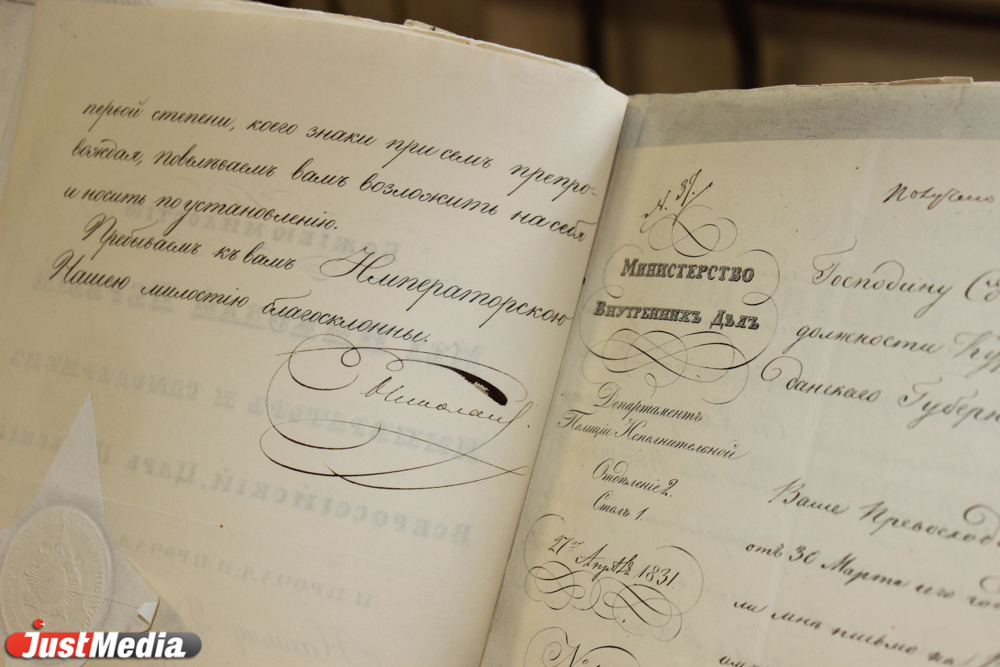 первой степени, коего знаки при семъ препро-
вождая, повелѣваемъ вамъ возложить на себя
и носить по установленію.
Пребываемъ къ вамъ Императорскою
Нашею милостію благосклонны.
Николай
Министерство
Внутреннихъ Дѣлъ
Департаментъ
Полиціи Исполнительной
Отдѣленіе 2.
Столъ 1.
27го Апрѣля 1831.
№
Господину
должности
Губерн
Ваше Превосход
отъ 30 Марта сего го
ли мнѣ письмо на
Божіею милостію
Всероссійскій, Царь
и прочая, и проча
JustMedia